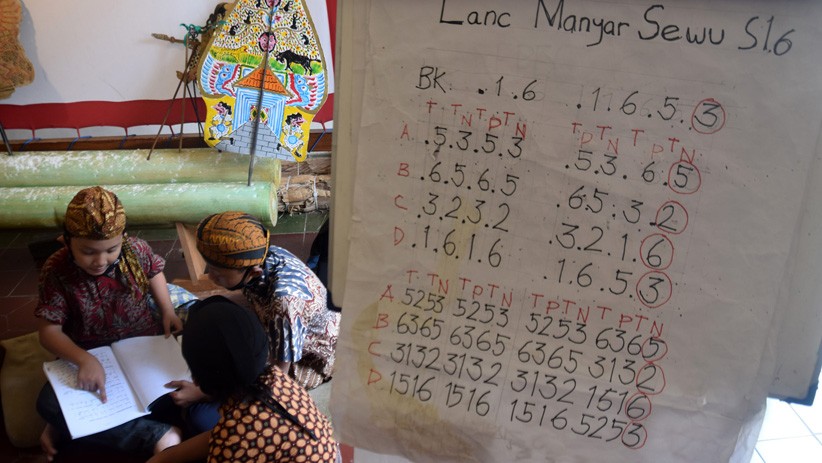 Lanc Manyar Sewu Sl.6
BK .1.6 .1.6.5.3
T TN TP TN TP TN T P TN
A .5.3.5.3 .5.3.6.5
B .6.5.6.5 .6.5.3.2
C .3.2.3.2 .3.2.1.6
D .1.6.1.6 .1.6.5.3
T TN T P T N T P T N T P T N
A 5253 5253 5253 6365
B 6365 6365 6365 3132
C 3132 3132 3132 1616
D 1516 1516 1516 5253